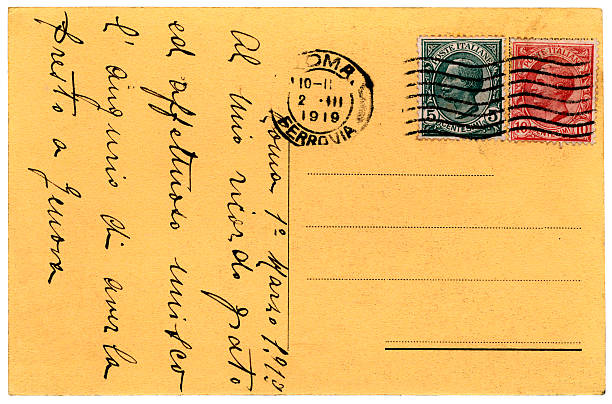 Roma 1º Marzo 1919
Al mio ricordo grato
ed affettuoso unisco
l'augurio di averla
presto a Genova
ROMA
10-11
2 III
1919
FERROVIA
POSTE ITALIANE
5 CENTESIMI 5
POSTE ITALIANE
10 CENTESIMI 10